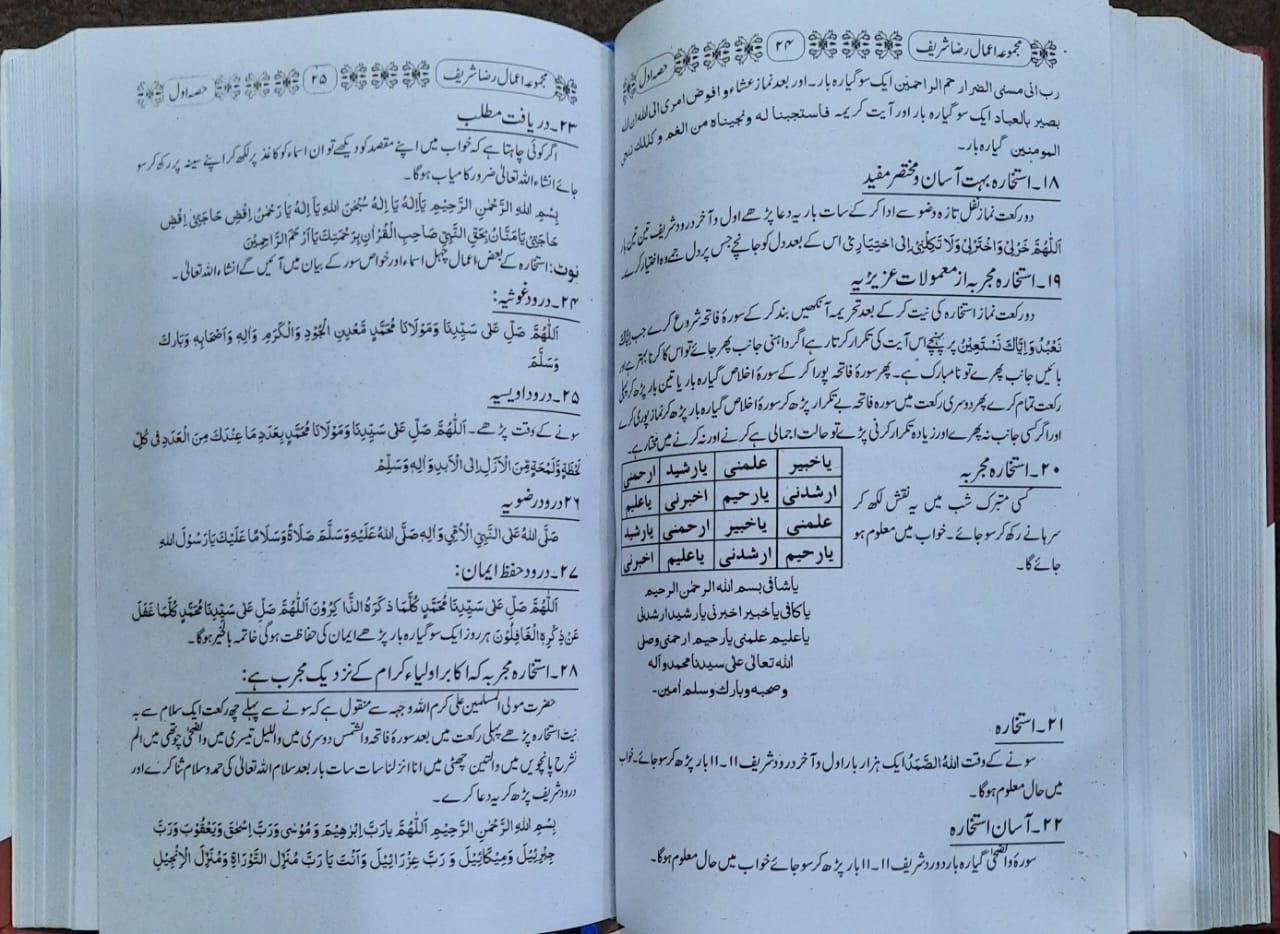 مجموعہ اعمال رضا شریف ۲۴ حصہ اول
رب انی مسنی الضر ارحم الراحمین ایک سو گیارہ بار۔ اور بعد نماز عشاء و افوض امری الی اللہ ان اللہ
بصیر بالعباد ایک سو گیارہ بار اور آیت کریمہ فاستجبنا له ونجیناه من الغم وكذلك ننجی
المومنین گیارہ بار۔
۱۸۔ استخارہ بہت آسان و مختصر مفید
دو رکعت نماز نفل تازہ وضو سے ادا کر کے سات بار یہ دعا پڑھے اول و آخر درود شریف تین تین بار
اَللّٰهُمَّ خِرْلِیْ وَاخْتَرْلِیْ وَلَا تَكِلْنِیْ اِلٰی اخْتِیَارِیْ اس کے بعد دل کو جانچے جس پر دل جمے وہ اختیار کرے
۱۹۔ استخارہ مجربہ از معمولات عزیزیہ
دو رکعت نماز استخارہ کی نیت کر کے بعد تحریمہ آنکھیں بند کر کے سورۂ فاتحہ شروع کرے جب اِیَّاكَ
نَعْبُدُ وَاِیَّاكَ نَسْتَعِیْنُ پر پہنچے اس آیت کی تکرار کرتا رہے اگر داہنی جانب پھر جائے تو اس کا کرنا بہتر ہے اور
بائیں جانب پھرے تو نا مبارک ہے۔ پھر سورۂ فاتحہ پورا کر کے سورۂ اخلاص گیارہ بار یا تین بار پڑھ کر پہلی
رکعت تمام کرے پھر دوسری رکعت میں سورہ فاتحہ بے تکرار پڑھ کر سورۂ اخلاص گیارہ بار پڑھ کر نماز پوری کرے
اور اگر کسی جانب نہ پھرے اور زیادہ تکرار کرنی پڑے تو حالت اجمالی ہے کرنے اور نہ کرنے میں مختار ہے۔
۲۰۔ استخارہ مجربہ
کسی متبرک شب میں یہ نقش لکھ کر
سرہانے رکھ کر سو جائے۔ خواب میں معلوم ہو
جائے گا۔
یاخبیر علمنی یارشید ارحمنی
ارشدنی یارحیم اخبرنی یاعلیم
علمنی یاخبیر ارحمنی یارشید
یارحیم ارشدنی یاعلیم اخبرنی
یاشافی بسم الله الرحمٰن الرحیم
یاکافی یاخبیر اخبرنی یارشید ارشدنی
یاعلیم علمنی یارحیم ارحمنی وصلی
الله تعالیٰ علی سیدنا محمد وآله
وصحبه وبارك وسلم اٰمین۔
۲۱۔ استخارہ
سونے کے وقت اَللهُ الصَّمَدُ ایک ہزار بار اول و آخر درود شریف ۱۱۔۱۱ بار پڑھ کر سو جائے۔ خواب
میں حال معلوم ہوگا۔
۲۲۔ آسان استخارہ
سورۂ والضحیٰ گیارہ بار درود شریف ۱۱۔۱۱ بار پڑھ کر سو جائے خواب میں حال معلوم ہوگا۔
مجموعہ اعمال رضا شریف ۲۵ حصہ اول
۲۳۔ دریافت مطلب
اگر کوئی چاہتا ہے کہ خواب میں اپنے مقصد کو دیکھے تو ان اسماء کو کاغذ پر لکھ کر اپنے سینہ پر رکھ کر سو
جائے انشاء اللہ تعالیٰ ضرور کامیاب ہوگا۔
بِسْمِ اللهِ الرَّحْمٰنِ الرَّحِیْمِ یَاۤاِلٰهُ یَا اِلٰهُ سُبْحٰنَ اللهِ یَاۤ اِلٰهُ یَا رَحْمٰنُ اِقْضِ حَاجَتِیْ اِقْضِ
حَاجَتِیْ یَا مَنَّانُ بِحَقِّ النَّبِیِّ صَاحِبِ الْقُرْاٰنِ بِرَحْمَتِكَ یَا اَرْحَمَ الرَّاحِمِیْنَ
نوٹ: استخارہ کے بعض اعمال چہل اسماء اور خواص سور کے بیان میں آئیں گے انشاء اللہ تعالیٰ۔
۲۴۔ درود غوثیہ:
اَللّٰهُمَّ صَلِّ عَلٰی سَیِّدِنَا وَمَوْلَانَا مُحَمَّدٍ مَّعْدِنِ الْجُوْدِ وَالْكَرَمِ وَاٰلِهٖ وَاَصْحَابِهٖ وَبَارِكْ
وَسَلِّمْ
۲۵۔ درود اویسیہ
سونے کے وقت پڑھے۔ اَللّٰهُمَّ صَلِّ عَلٰی سَیِّدِنَا وَمَوْلَانَا مُحَمَّدٍ بِعَدَدِ مَا عِنْدَكَ مِنَ الْعَدَدِ فِیْ كُلِّ
لَحْظَةٍ وَّلَمْحَةٍ مِّنَ الْاَزَلِ اِلَی الْاَبَدِ وَاٰلِهٖ وَسَلِّمْ
۲۶ درود رضویہ
صَلَّی اللهُ عَلَی النَّبِیِّ الْاُمِّیِّ وَاٰلِهٖ صَلَّی اللهُ عَلَیْهِ وَسَلَّمَ صَلَاةً وَّسَلَامًا عَلَیْكَ یَا رَسُوْلَ اللهِ
۲۷۔ درود حفظ ایمان:
اَللّٰهُمَّ صَلِّ عَلٰی سَیِّدِنَا مُحَمَّدٍ كُلَّمَا ذَكَرَهُ الذَّاكِرُوْنَ اَللّٰهُمَّ صَلِّ عَلٰی سَیِّدِنَا مُحَمَّدٍ كُلَّمَا غَفَلَ
عَنْ ذِكْرِهِ الْغَافِلُوْنَ ہر روز ایک سو گیارہ بار پڑھے ایمان کی حفاظت ہوگی خاتمہ بالخیر ہوگا۔
۲۸۔ استخارہ مجربہ کہ اکابر اولیاء کرام کے نزدیک مجرب ہے:
حضرت مولی المسلمین علی کرم اللہ وجہہ سے منقول ہے کہ سونے سے پہلے چھ رکعت ایک سلام سے بہ
نیت استخارہ پڑھے پہلی رکعت میں بعد سورۂ فاتحہ والشمس دوسری میں واللیل تیسری میں والضحیٰ چوتھی میں الم
نشرح پانچویں میں والتین چھٹی میں انا انزلنا سات سات بار بعد سلام اللہ تعالیٰ کی حمد و ثنا کرے اور
درود شریف پڑھ کر یہ دعا کرے۔
بِسْمِ اللهِ الرَّحْمٰنِ الرَّحِیْمِ اَللّٰهُمَّ یَا رَبَّ اِبْرٰهِیْمَ وَمُوْسٰی وَرَبَّ اِسْحٰقَ وَیَعْقُوْبَ وَرَبَّ
جِبْرَئِیْلَ وَمِیْكَائِیْلَ وَرَبَّ عِزْرَائِیْلَ وَاَنْتَ یَا رَبَّ مُنَزِّلَ التَّوْرَاةِ وَمُنَزِّلَ الْاِنْجِیْلِ